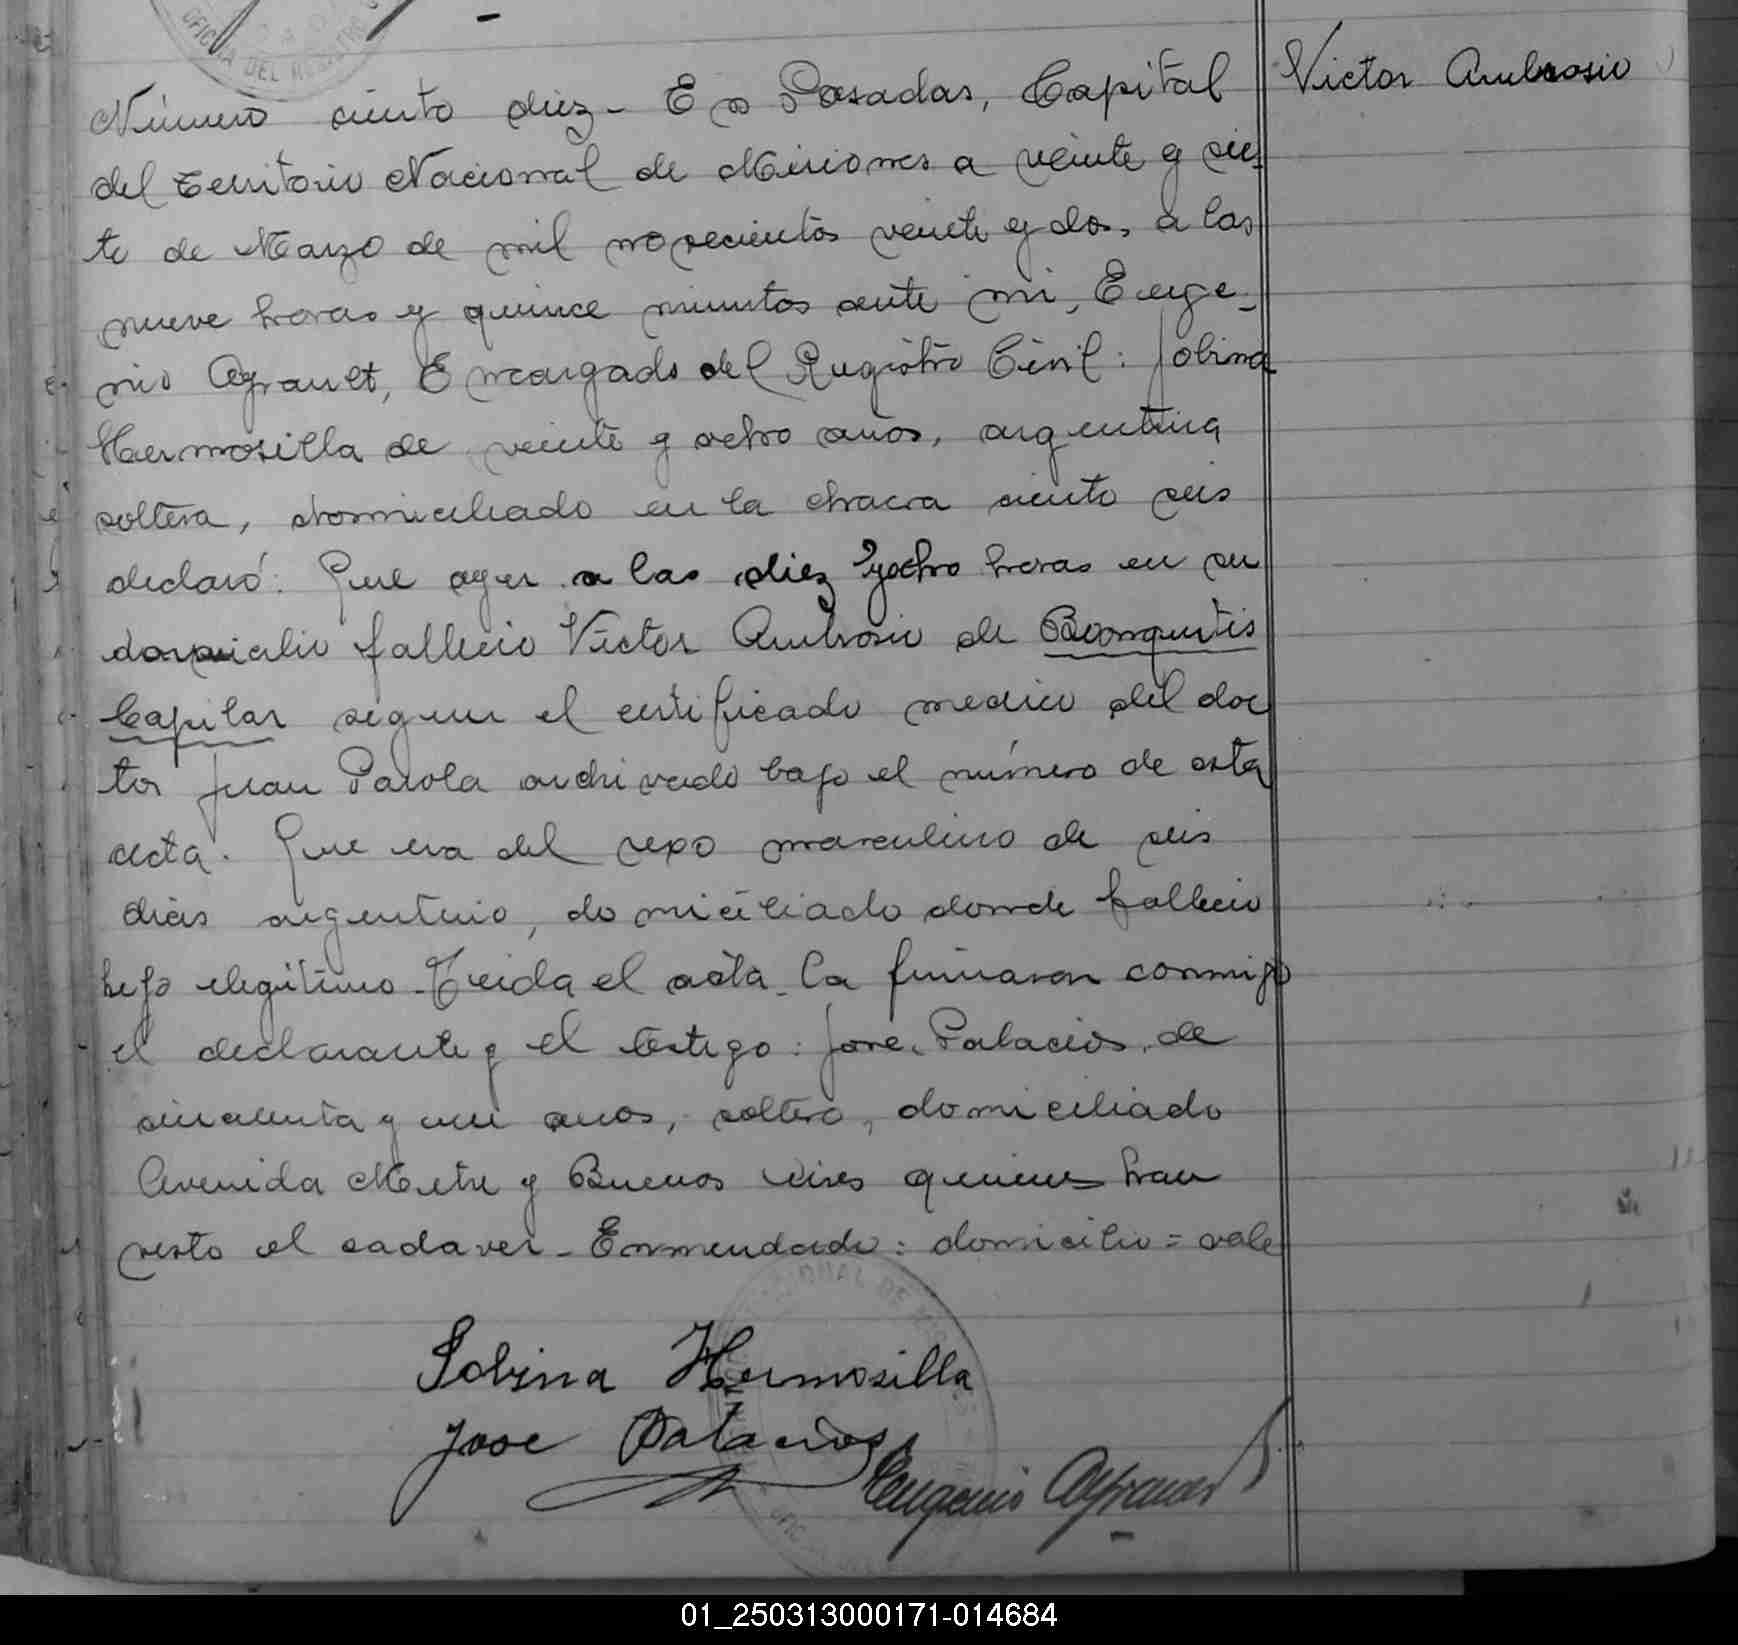 OFICINA DEL REGISTRO
Número ciento diez - En Posadas, Capital
Victor Ambrosio
del Territorio Nacional de Misiones a veinte y sie-
te de Marzo de mil novecientos veinte y dos, a las
nueve horas y quince minutos ante mi, Euge-
nio Agrault, Encargado del Registro Civil: Jobina
Hermosilla de veinte y ocho años, argentina
soltera, domiciliado en la chacra ciento seis
declaró: Que ayer a las diez y ocho horas en su
domicilio fallecio Victor Ambrosio de Bronquitis
Capilar segun el certificado medico del doc
tor Juan Parola archivado bajo el número de esta
acta. Que era del sexo masculino de seis
dias argentino, domiciliado donde fallecio
hijo ilegitimo - Leida el acta la firmaron conmigo
el declarante y el testigo: José Palacios, de
cincuenta y un anos, soltero, domiciliado
Avenida Mitre y Buenos Aires quienes han
visto el cadaver - Enmendado: domicilio = vale
Sobina Hermosilla
Jose Palacios
Eugenio
01_250313000171-014684